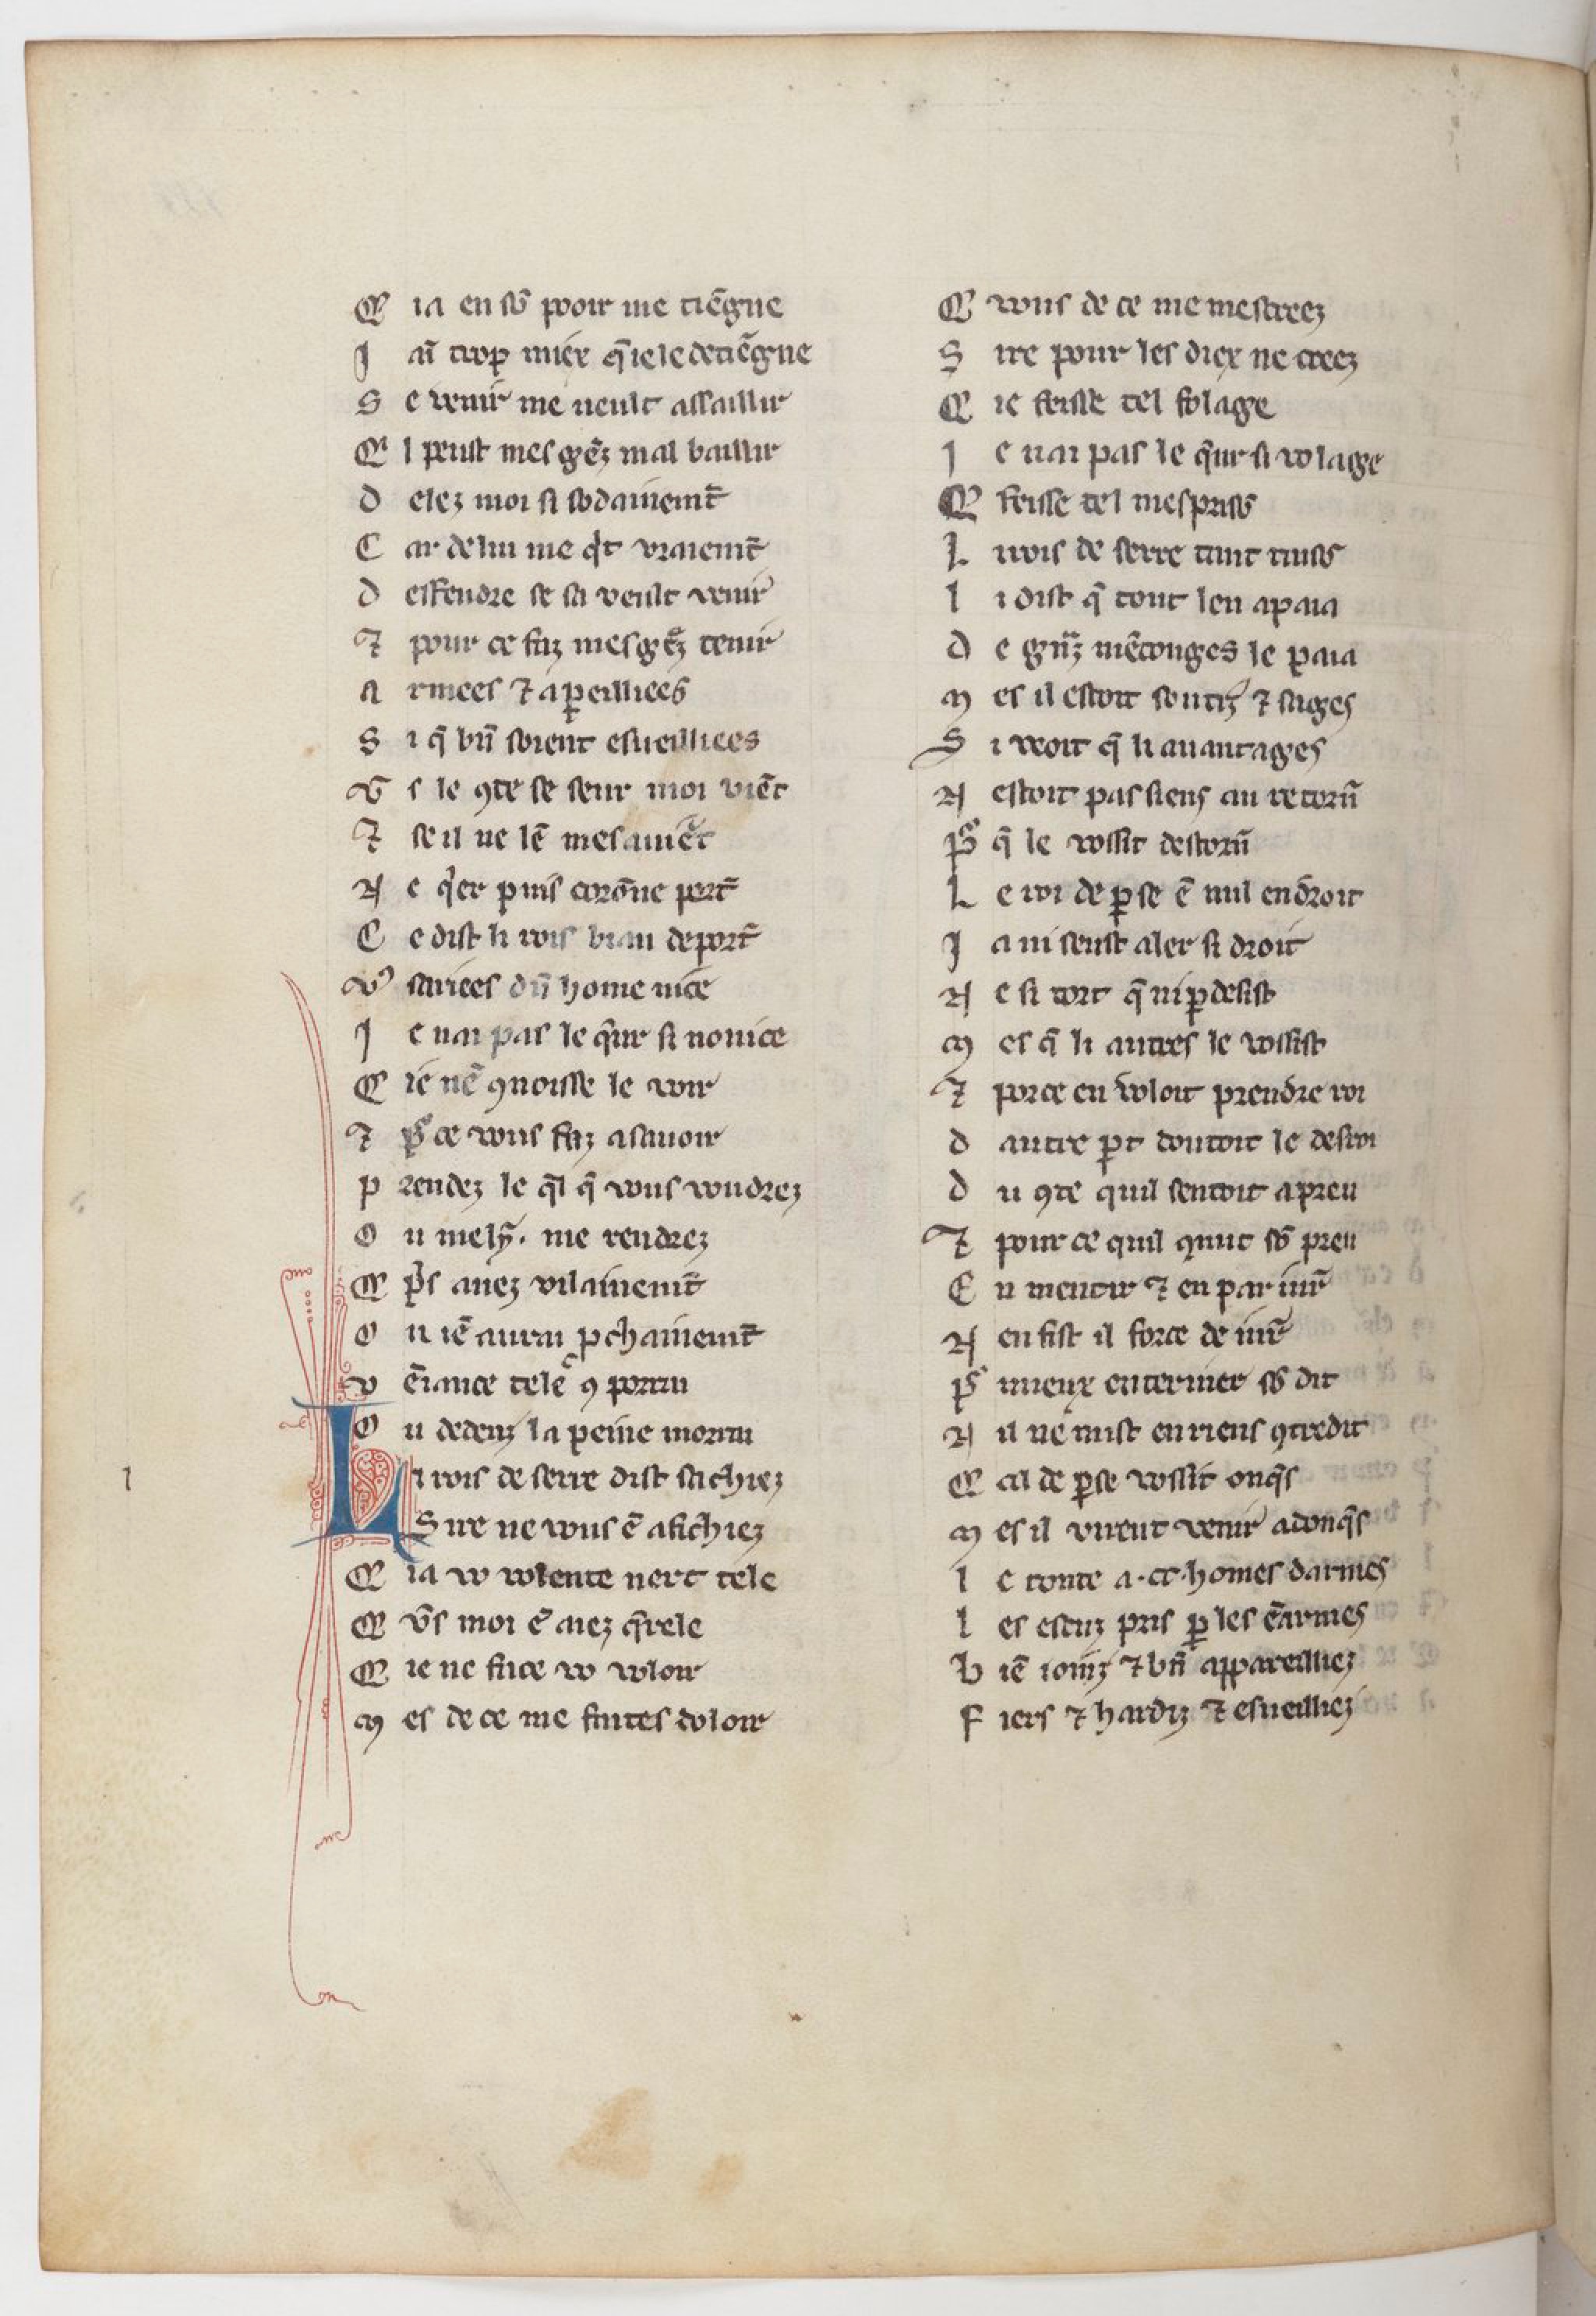 Q̃ ia en sõ pooir me tiẽgne
J aĩ trop miex q̃ ie le detiẽgne
S e venir me ueult assaillir
Q̃ l peust mes gẽz mal baillir
D elez moi si sodainemt̃
C ar de lui me gͥt vraiemt̃
D effendre se sa veult venir
⁊ pour ce faz mes gẽz tenir
A rmees ⁊ aꝑeilliees
S i q̃ bñ soient esueilliees
V̾ s le ꝯte se seur moi viẽt
⁊ se il ne lẽ mesauiẽt
N e qͥer puis corõne port̾
C e dist li rois biau deport̾
V̾ sariees dũ home nice
J e nai pas le q̃ur si nouice
Q̃ ie nẽ ꝯnoisse le voir
⁊ pͬ ce vous faz asauoir
P rendez le q̃l q̃ vous voudrez
O u mely̾. me rendrez
Q̃ pͥs auez vilainemt̃
O u iẽ aurai ꝓchainemt̃
V ẽiance tele cͦ ꝯ porrai
O u dedenz la peine morrai
L i rois de serre dist sachiez
S ire ne vous ẽ afichiez
Q̃ ia vo volente nert tele
Q̃ v̾s moi ẽ aiez q̃rele
Q̃ ie ne face vo voloir
M es de ce me faites doloir
Q̃ vous de ce me mescreez
S ire pour les diex ne creez
Q̃ ie feisse tel folage
J e nai pas le q̃ur si volage
Q̃ feisse tel mesprisõ
L i rois de serre tant raisõ
L i dist q̃ tout len apaia
D e gñz mẽconges le paia
M es il estoit soutiz ⁊ sages
S i veoit q̃ li auantages
N estoit pas siens au retorñ
Pͬ q̃ le vossit destorñ
L e roi de ꝑse ẽ nul endroit
J a ni seust aler si droit
N e si tort q̃ ni ꝑdesist
M es q̃ li autres le vosist
⁊ por ce en voloit prendre roi
D autre ꝑt doutoit le desroi
D u ꝯte quil sentoit a preu
⁊ pour ce quil ꝯnut sõ preu
E n mentir ⁊ en pariur̾
N en fist il force de iur̾
Pͬ mieux enteriner sõ dit
N il ne mist en riens ꝯtredit
Q̃ cil de ꝑse vossit onq̃s
M es il virent venir adonq̃s
L e conte a .cc. homes darmes
L es escuz pris ꝑ les ẽarmes
B iẽ ioinz ⁊ bñ appareilliez
F iers ⁊ hardiz ⁊ esueilliez